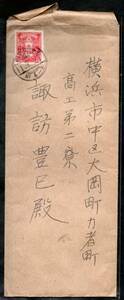 横浜市中区大岡町力者町
高工第二寮
諏訪豊巳殿